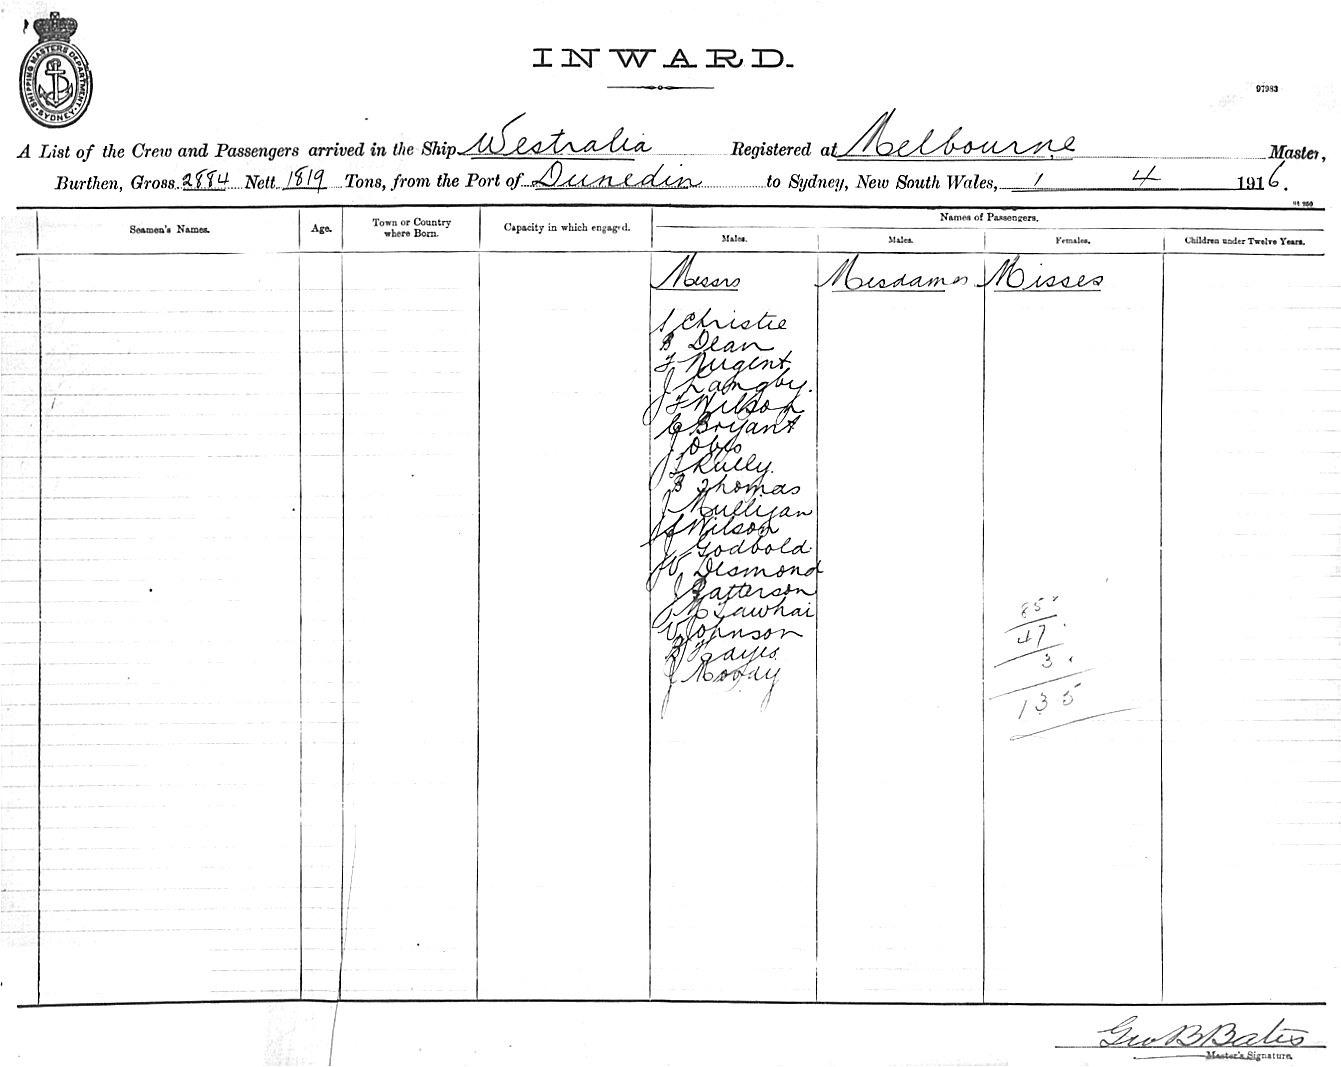 SHIPPING MASTERS DEPARTMENT
SYDNEY
INWARD.
97983
A List of the Crew and Passengers arrived in the Ship Westralia Registered at Melbourne Master,
Burthen, Gross 2884 Nett 1819 Tons, from the Port of Dunedin to Sydney, New South Wales, 1 4 1916.
Seamen's Names.
Age.
Town or Country
where Born.
Capacity in which engaged.
Names of Passengers.
Males.
Males.
Females.
Children under Twelve Years.
Messrs
Mesdames
Misses
S Christie
B Dean
F Nugent
J Langby.
J F Wilson
C Bryant
J Obys
J L Rully.
B Thomas
J Mulligan
Wilson
J Godbold
W Desmond
J Patterson
Tawhai
V Johnson
B Hayes
J Moody
85
47
3
135
Geo B Bates
Master's Signature.